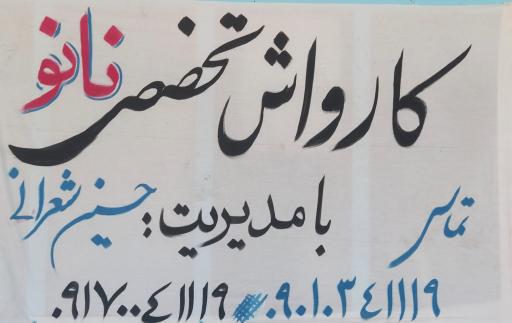 کارواش تخصصی نانو
با مدیریت: حسین شعرانی
تماس
۰۹۰۱۰۳٤۱۱۱۹ ۰۹۱۷۰۰٤۱۱۱۹